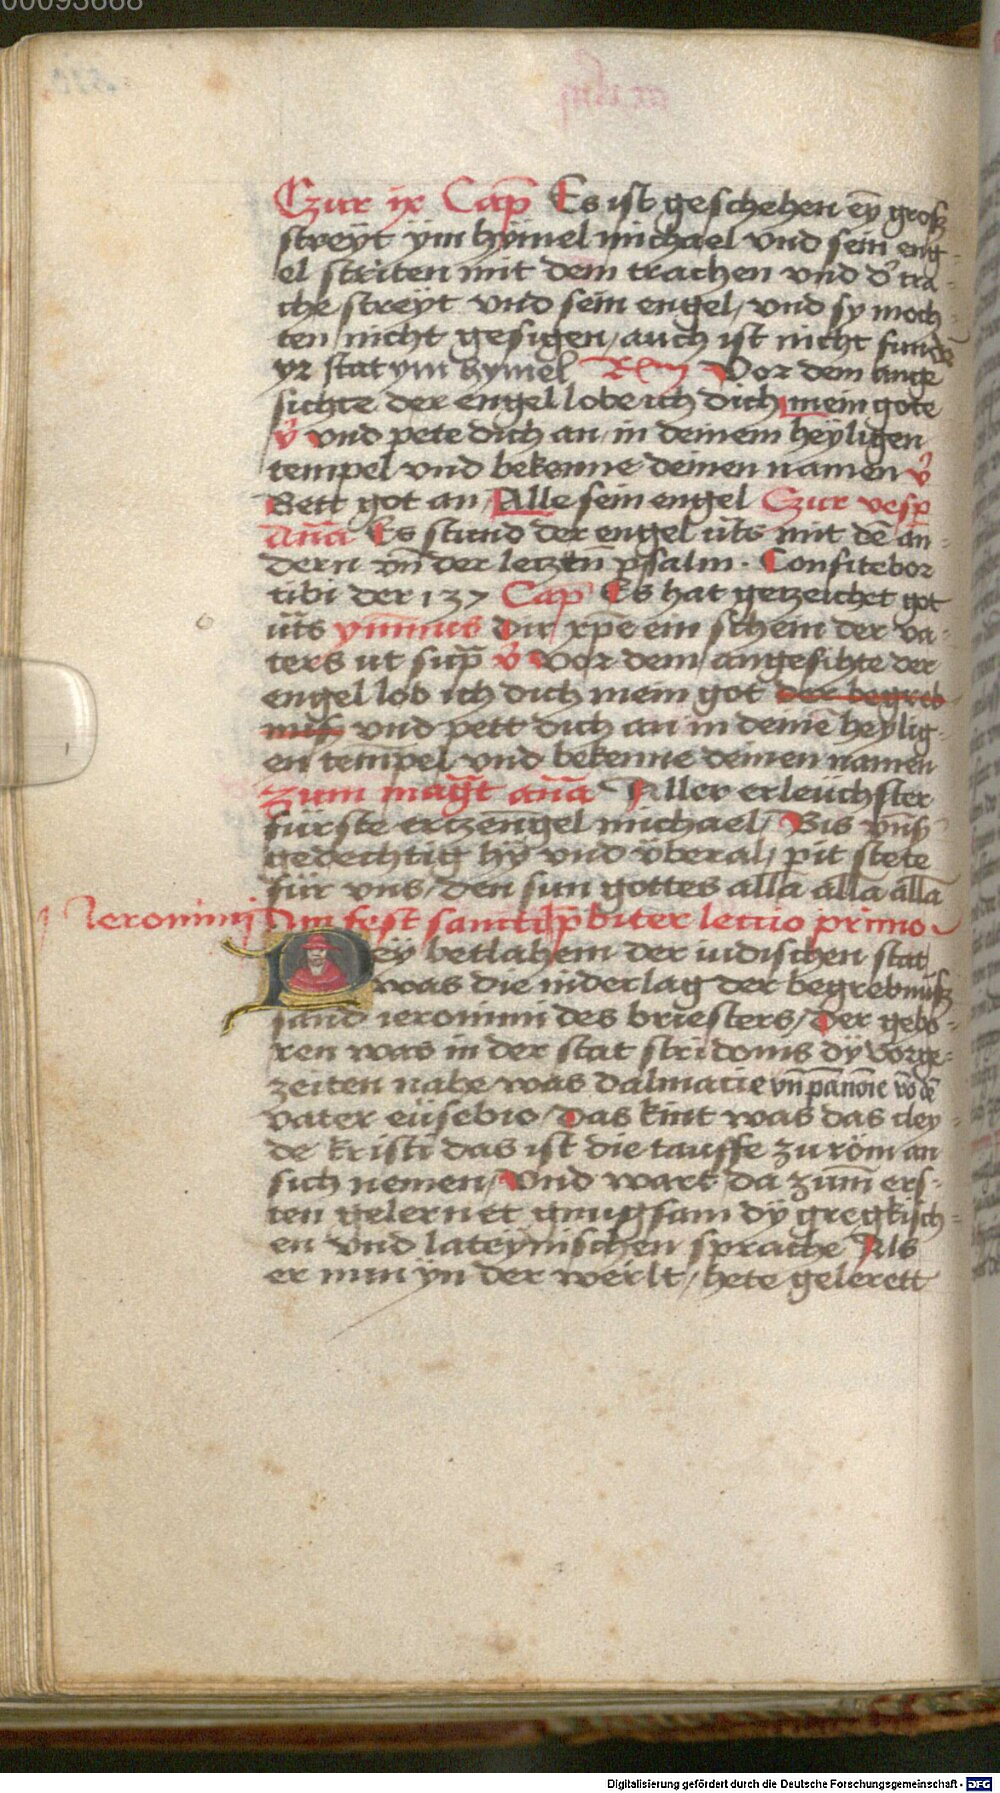 00093668
Czur ix Cap̄ Es ist geschehen eȳ grosz
streÿt ÿm hÿmel michael vnd sein eng-
el striten mit dem trachen vnd d' tra-
che streÿt vnd sein engel, vnd sy moch-
ten nicht gesigen, auch ist nicht funden
yr stat ym hymel Rm Vor dem ange
sichte der engel lobe ich dich mein gote
v̉ vnd pete dich an in deinem heÿligen
tempel vnd bekenne deinen namen v̉
Bett got an Alle sein engel Czur vesp̄
Ana̅ Es stund der engel ut̅s mit de̅ an-
dern vn̅ der letztn̅ psalm. Confitebor
tibi der 137 Cap̄ Es hat getzeichet got
ut̅s ymnus Dir xpe̅ ein schein der va-
ters ut sup̄ v̉ Vor dem angesihte der
engel lob ich dich mein got der begreb
nuß vnd pett dich an in deine̅ heylig-
en tempel vnd bekenne deinen namen
zum mag̅t ana̅ Aller erleüchster
fürste ertzengel michael, Bis vns
gedechtig hÿ vnd vberal, pit stete
für vns, den sun gottes alla̅ alla̅ alla̅
Ieronimi Am fest sancti p̄biter leccio primo
Beÿ betlahem der iudischen stat
was die niderlag der begrebnusz
sand ieronimi des briesters, Der gebo-
ren was in der stat stridonis dÿ vorge-
zeiten nahe was dalmacie vn̅ panonie vo̅ de̅
vater eüsebio, Das kint was das cley-
de kristi das ist die tauffe zu röm an
sich nemen, Vnd wart da zum̅ ers-
ten gelernet gnugsam dÿ gregkisch-
en vnd lateÿnischen sprache Als
er nun ÿn der werlt, hete gelerett
Digitalisierung gefördert durch die Deutsche Forschungsgemeinschaft - DFG